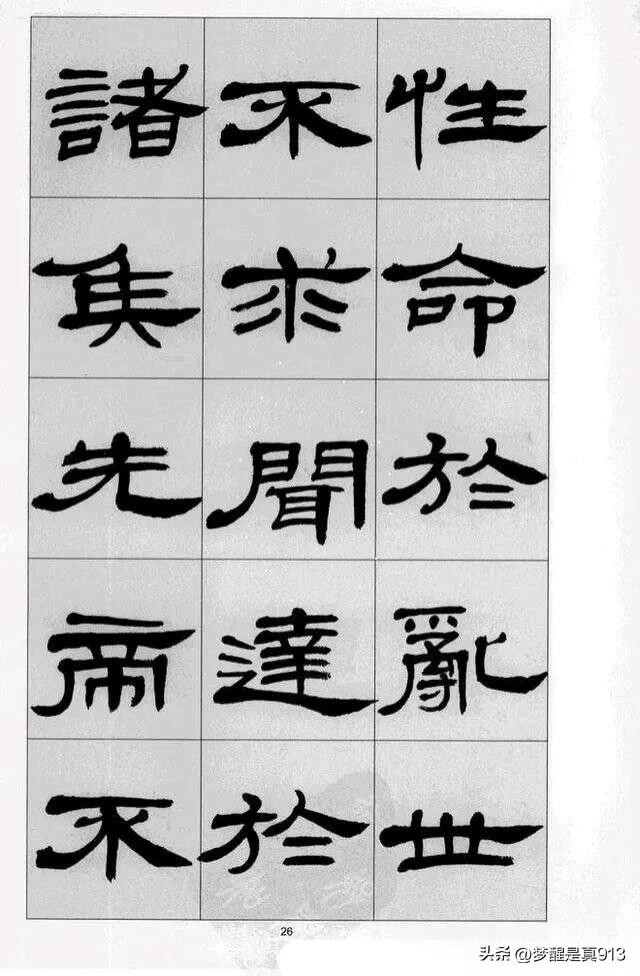 性命於亂世
不求聞達於
諸矦先帝不
26
头条@梦醒是真913